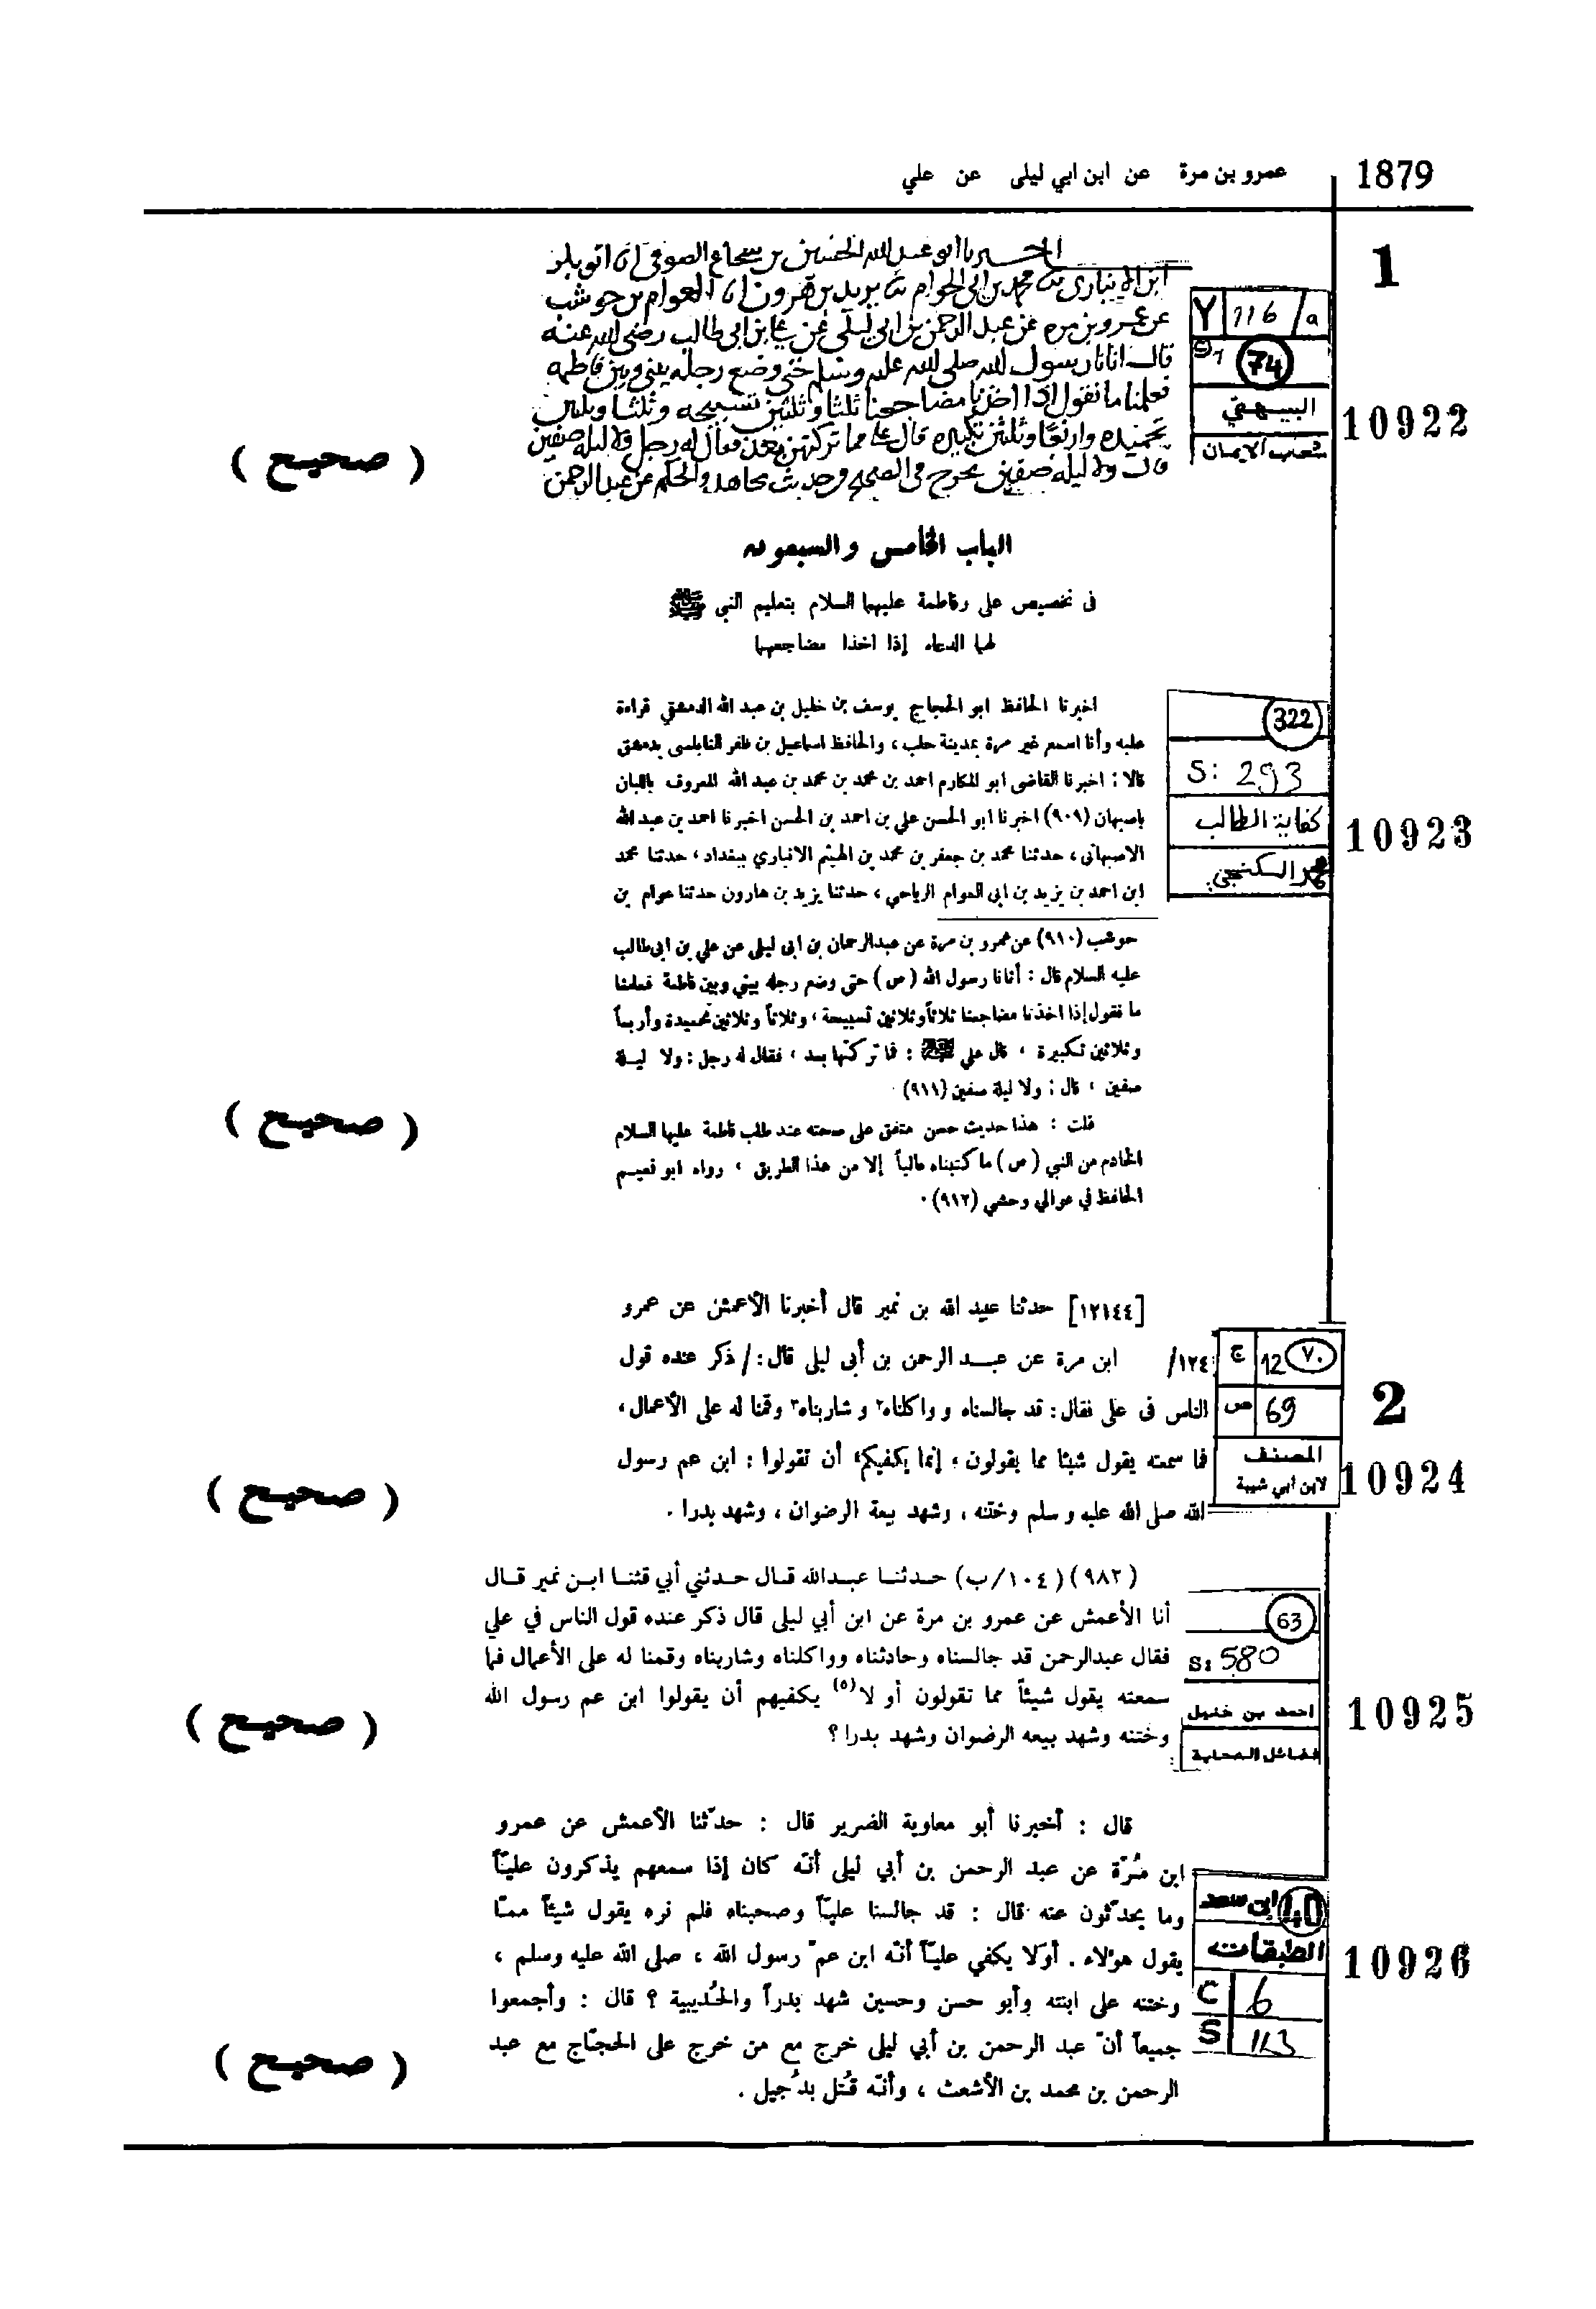 1879
عمرو بن مرة عن ابن ابي ليلى عن علي
1
ابن الانباري محمد بن ابي العوام يزيد بن هرون العوام بن حوشب
عن عمرو بن مره عن عبد الرحمن بن ابي ليلى عن علي بن ابي طالب رضي الله عنه
قال اتانا رسول الله صلى الله عليه وسلم حتى وضع رجله بيني وبين فاطمه
فعلمنا ما نقول اذا اخذنا مضاجعنا ثلثا وثلثين تسبيحه وثلثا وثلثين
تحميده واربعا وثلثين تكبيره قال علي مما تركتهن بعد فقال له رجل ولا ليله صفين
قال ولا ليله صفين مجاهد والحكم عن عبد الرحمن
Y 116 / a
74
البيهقي
شعب الايمان
10922
( صحيح )
الباب الخامس والسبعون
في تخصيص علي وفاطمة عليهما السلام بتعليم النبي ﷺ
لهما الدعاء إذا اخذا مضاجعهما
اخبرنا الحافظ ابو الحجاج يوسف بن خليل بن عبد الله الدمشقي قراءة
عليه وأنا اسمع غير مرة بمدينة حلب ، والحافظ اسماعيل بن ظفر النابلسي بدمشق
قالا : اخبرنا القاضي ابو المكارم احمد بن محمد بن محمد بن عبد الله المعروف باللبان
باصبهان (٩٠٩) اخبرنا ابو الحسن علي بن احمد بن الحسن اخبرنا احمد بن عبد الله
الاصبهاني ، حدثنا محمد بن جعفر بن محمد بن الهيثم الانباري ببغداد ، حدثنا محمد
ابن احمد بن يزيد بن ابي العوام الرياحي ، حدثنا يزيد بن هارون حدثنا عوام بن
حوشب (٩١٠) عن عمرو بن مرة عن عبدالرحمان بن ابي ليلى عن علي بن ابي طالب
عليه السلام قال : أتانا رسول الله (ص) حتى وضع رجله بيني وبين فاطمة فعلمنا
ما نقول إذا اخذنا مضاجعنا ثلاثاً وثلاثين تسبيحة ، وثلاثاً وثلاثين تحميدة وأربعاً
وثلاثين تكبيرة ، قال علي : فما تركتها بعد ، فقال له رجل : ولا ليلة
صفين ، قال : ولا ليلة صفين (٩١١) .
قلت : هذا حديث حسن متفق على صحته عند طلب فاطمة عليها السلام
الخادم من النبي (ص) ما كتبناه عالياً إلا من هذا الطريق ، رواه ابو نعيم
الحافظ في عوالي وحشي (٩١٢) .
322
S: 293
كفاية الطالب
محمد الكنجي
10923
( صحيح )
[١٢١٤٤] حدثنا عبد الله بن نمير قال أخبرنا الأعمش عن عمرو
/١٢٤ ابن مرة عن عبد الرحمن بن أبى ليلى قال : / ذكر عنده قول
الناس فى على فقال : قد جالسناه و واكلناه٢ و شاربناه٣ وقمنا له على الأعمال ،
فما سمعته يقول شيئا مما يقولون ، إنما يكفيكم٤ أن تقولوا : ابن عم رسول
الله صلى الله عليه و سلم وختنه ، وشهد بيعة الرضوان ، وشهد بدرا .
ج 12 ٧٠
ص 69
المصنف
لابن ابي شيبة
2
10924
( صحيح )
(٩٨٢) (١٠٤/ب) حدثنا عبدالله قال حدثني أبي قثنا ابن نمير قال
أنا الأعمش عن عمرو بن مرة عن ابن أبي ليلى قال ذكر عنده قول الناس في علي
فقال عبدالرحمن قد جالسناه وحادثناه وواكلناه وشاربناه وقمنا له على الأعمال فما
سمعته يقول شيئاً مما تقولون أو لا(٥) يكفيهم أن يقولوا ابن عم رسول الله
وختنه وشهد بيعه الرضوان وشهد بدرا ؟
63
S: 580
احمد بن حنبل
فضائل الصحابة
10925
( صحيح )
قال : أخبرنا أبو معاوية الضرير قال : حدّثنا الأعمش عن عمرو
ابن مُرّة عن عبد الرحمن بن أبي ليلى أنّه كان إذا سمعهم يذكرون عليّاً
وما يحدّثون عنه قال : قد جالسنا عليّاً وصحبناه فلم نره يقول شيئاً ممّا
يقول هؤلاء . أوَلا يكفي عليّاً أنّه ابن عمّ رسول الله ، صلى الله عليه وسلم ،
وختنه على ابنته وأبو حسن وحسين شهد بدراً والحُديبية ؟ قال : وأجمعوا
جميعاً أنّ عبد الرحمن بن أبي ليلى خرج مع من خرج على الحجّاج مع عبد
الرحمن بن محمد بن الأشعث ، وأنّه قُتل بدُجيل .
ابن سعد 40
الطبقات
C 6
S 113
10926
( صحيح )